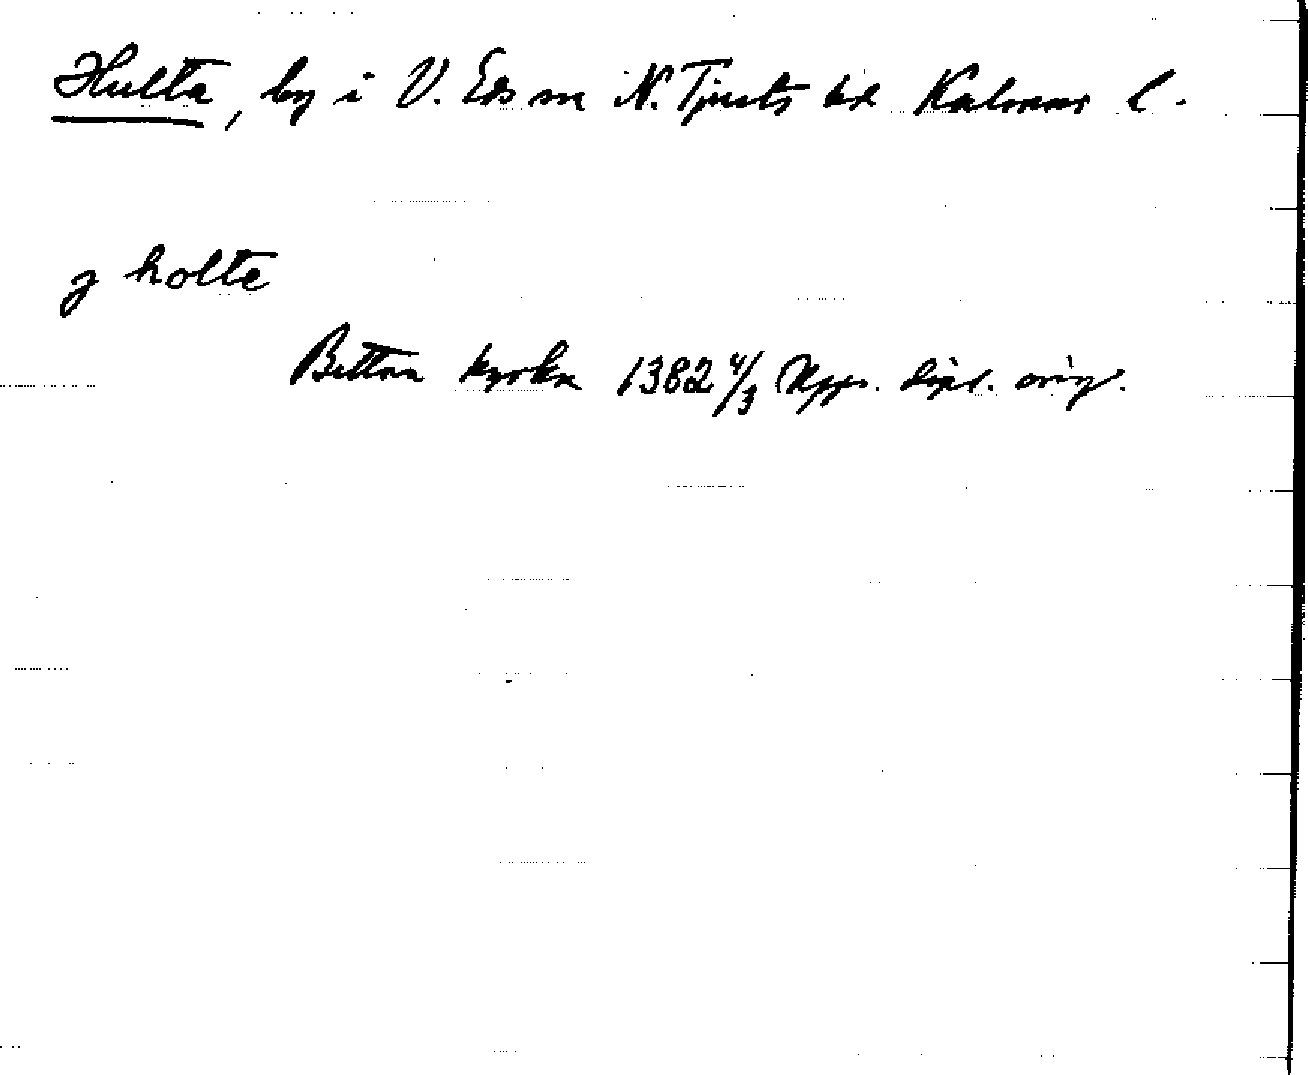 Hulta, by i V. Eds sn N. Tjusts hd Kalmar l.
j holta
Bettna kyrka 1382 4/3 Upps. dipl. orig.